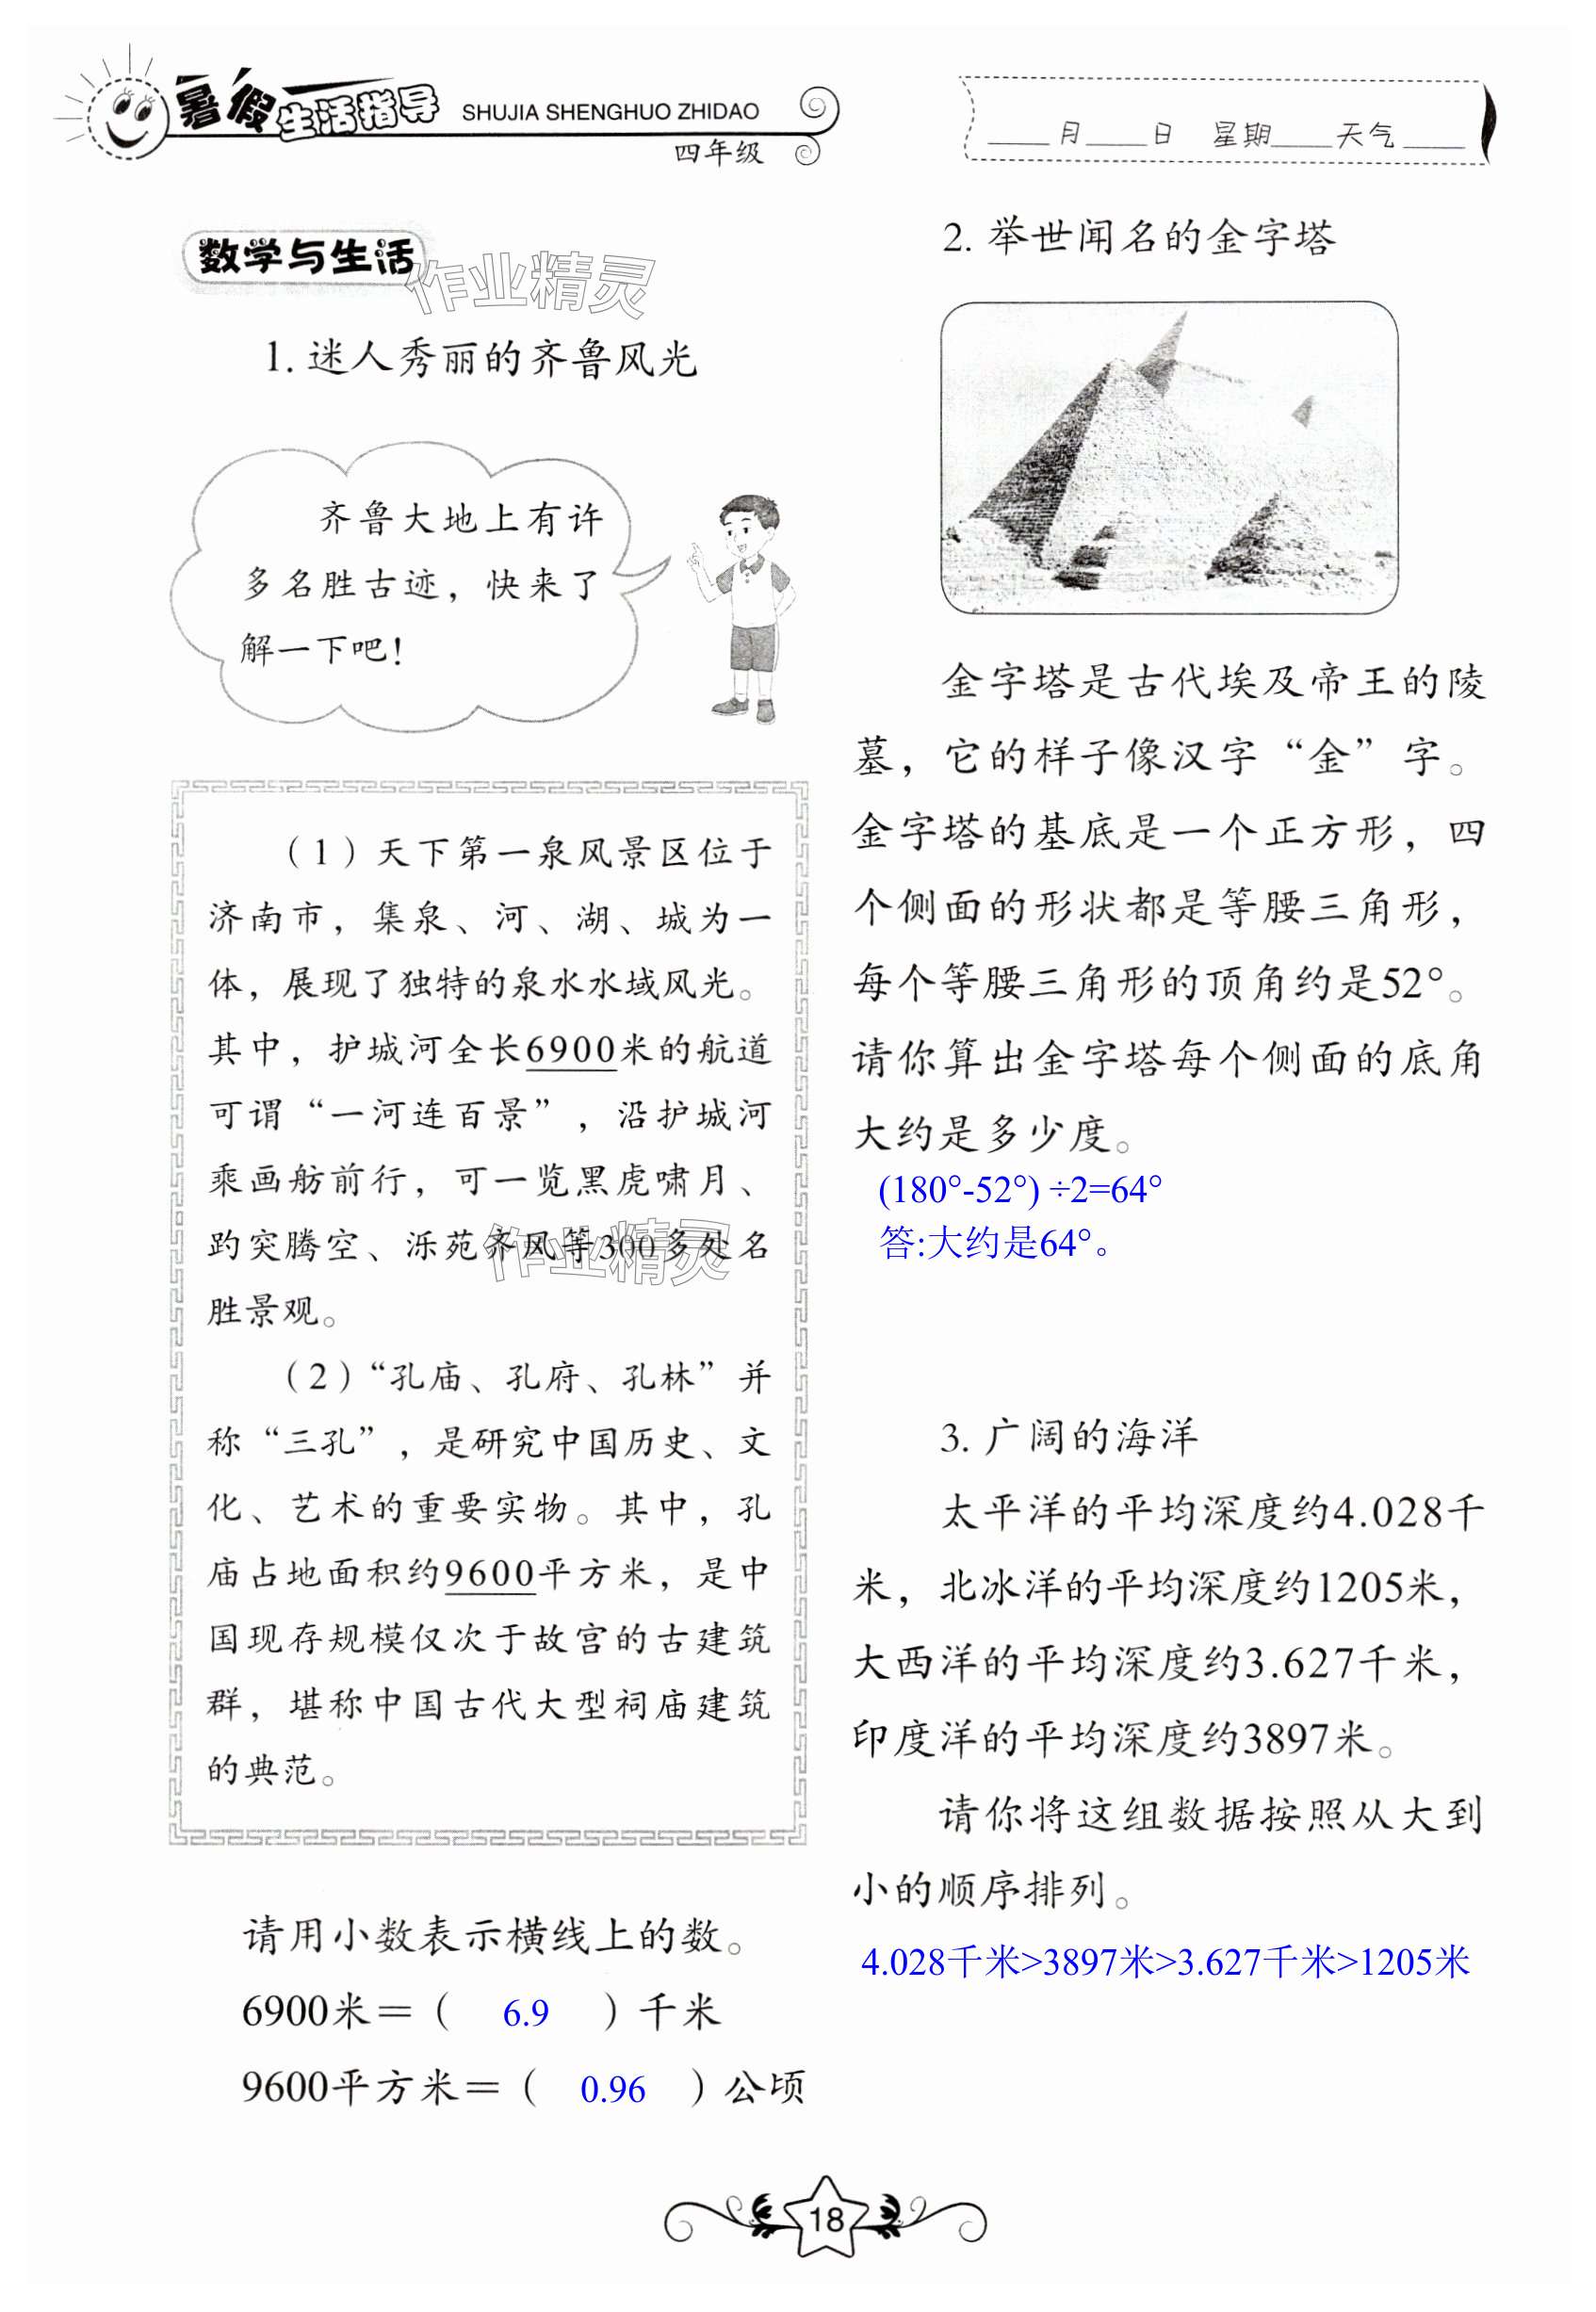 暑假生活指导 SHUJIA SHENGHUO ZHIDAO
四年级
____月____日 星期____天气____
数学与生活
作业精灵
1. 迷人秀丽的齐鲁风光
齐鲁大地上有许
多名胜古迹，快来了
解一下吧！
（1）天下第一泉风景区位于
济南市，集泉、河、湖、城为一
体，展现了独特的泉水水域风光。
其中，护城河全长6900米的航道
可谓“一河连百景”，沿护城河
乘画舫前行，可一览黑虎啸月、
趵突腾空、泺苑齐风等300多处名
作业精灵
胜景观。
（2）“孔庙、孔府、孔林”并
称“三孔”，是研究中国历史、文
化、艺术的重要实物。其中，孔
庙占地面积约9600平方米，是中
国现存规模仅次于故宫的古建筑
群，堪称中国古代大型祠庙建筑
的典范。
请用小数表示横线上的数。
6900米＝（ 6.9 ）千米
9600平方米＝（ 0.96 ）公顷
2. 举世闻名的金字塔
金字塔是古代埃及帝王的陵
墓，它的样子像汉字“金”字。
金字塔的基底是一个正方形，四
个侧面的形状都是等腰三角形，
每个等腰三角形的顶角约是52°。
请你算出金字塔每个侧面的底角
大约是多少度。
(180°-52°) ÷2=64°
答:大约是64°。
3. 广阔的海洋
太平洋的平均深度约4.028千
米，北冰洋的平均深度约1205米，
大西洋的平均深度约3.627千米，
印度洋的平均深度约3897米。
请你将这组数据按照从大到
小的顺序排列。
4.028千米>3897米>3.627千米>1205米
18